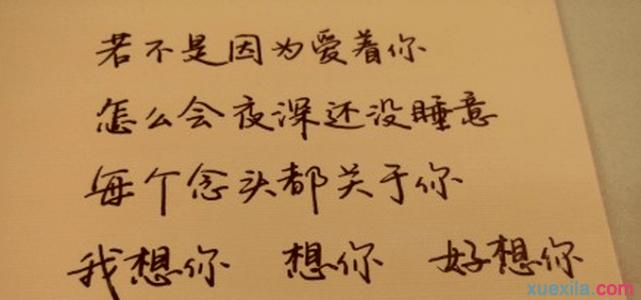 若不是因为爱着你
怎么会夜深还没睡意
每个念头都关于你
我想你 想你 好想你
xuexila.com